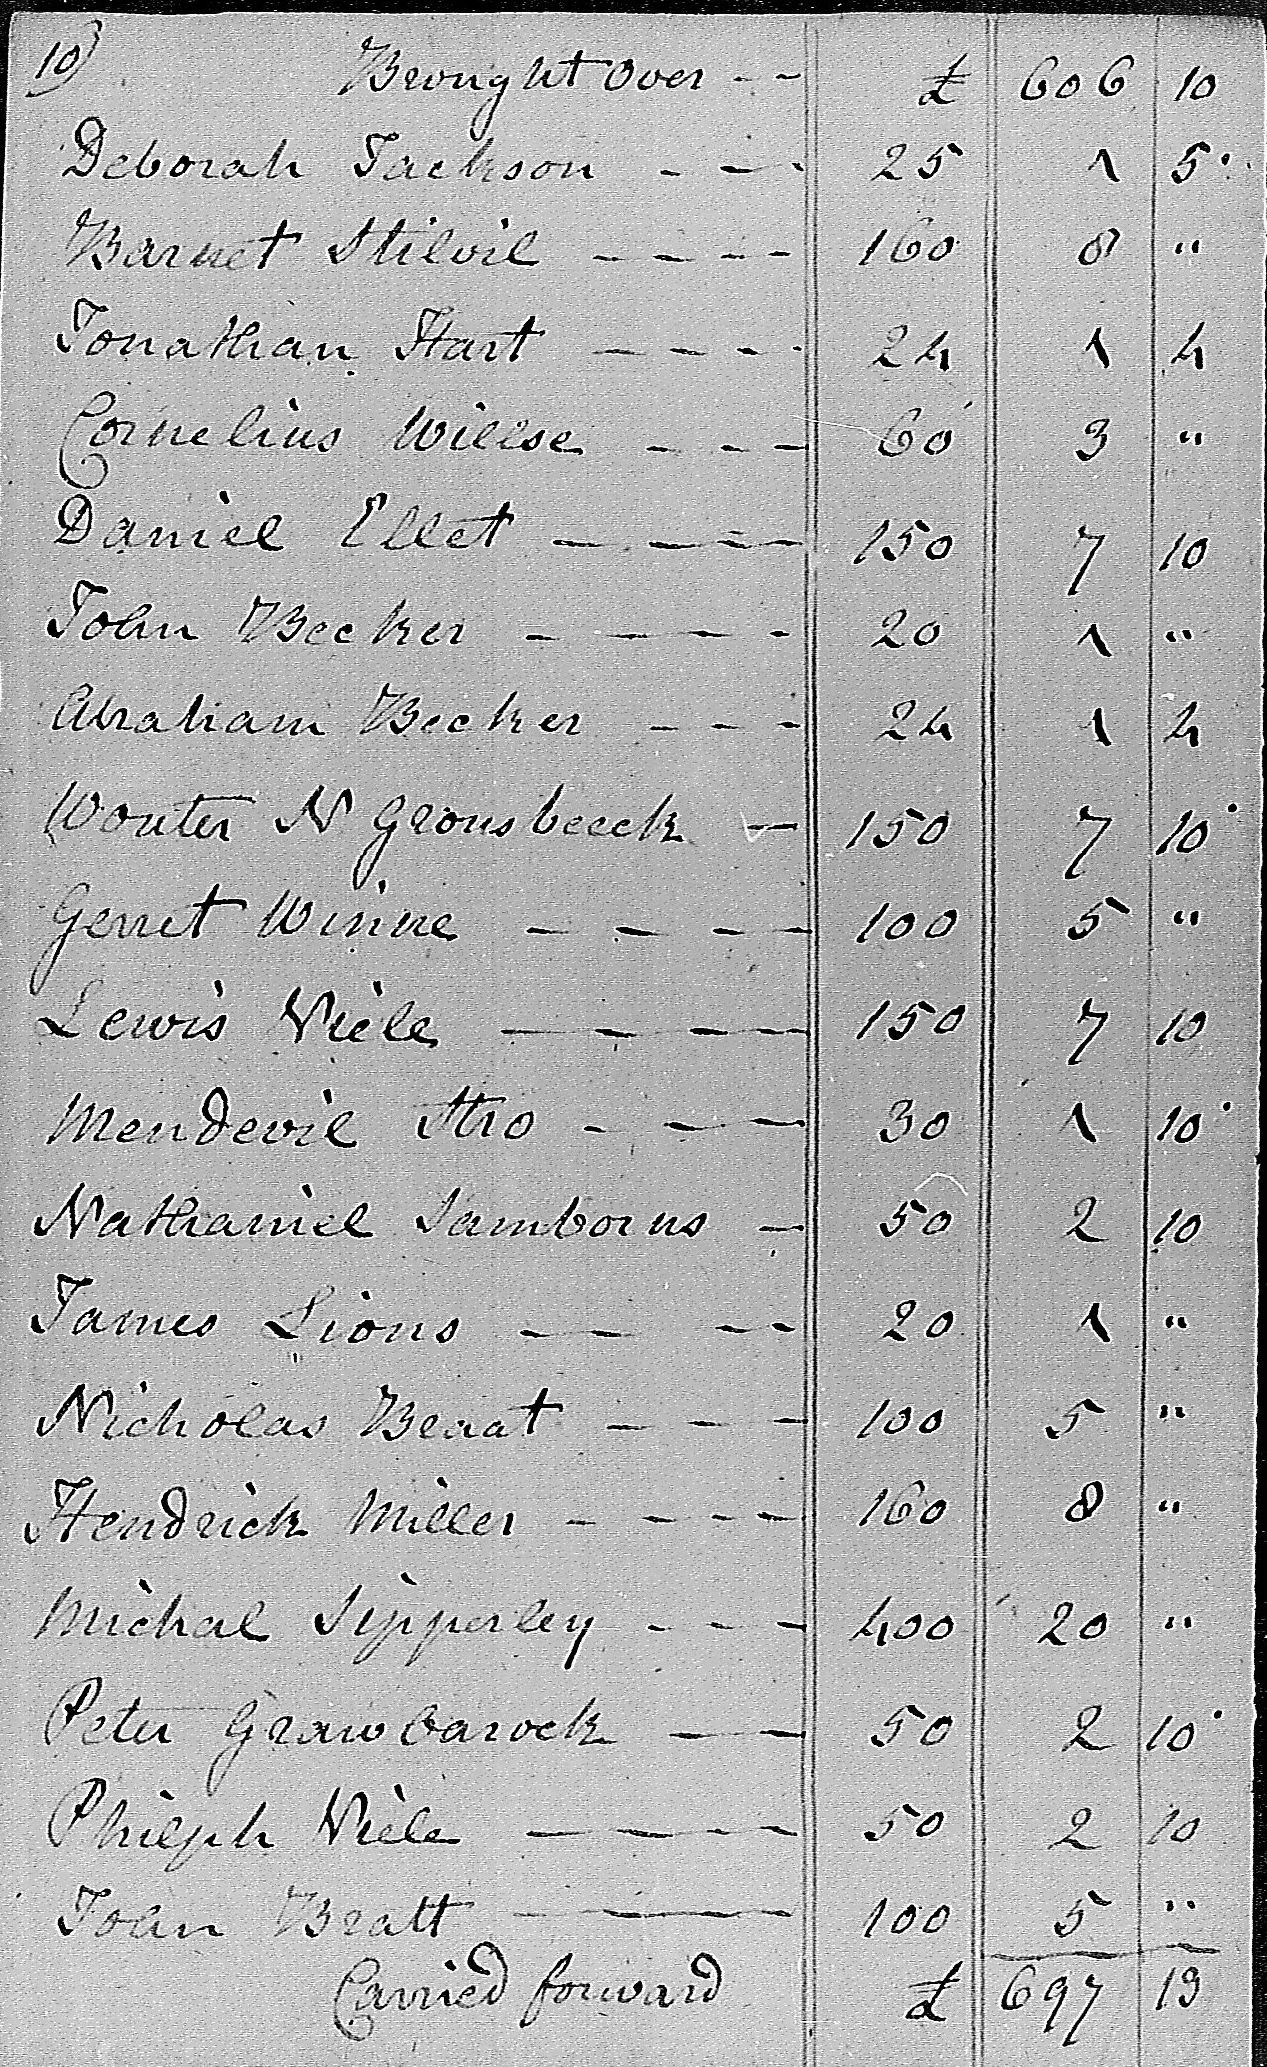 10) Brought Over -- £ 606 10
Deborah Jackson --- 25 1 5
Barnet Stilvil ---- 160 8 "
Jonathan Hart ---- 24 1 4
Cornelius Willse --- 60 3 "
Daniel Ellet ---- 150 7 10
John Becker ---- 20 1 "
Abraham Becker --- 24 1 4
Wouter N Grousbeeck - 150 7 10
Gerret Winne ---- 100 5 "
Lewis Viele ---- 150 7 10
Mendevil Stro --- 30 1 10
Nathaniel Samborns - 50 2 10
James Lions ---- 20 1 "
Nicholas Braat --- 100 5 "
Hendrick Miller ---- 160 8 "
Michal Sipperley --- 400 20 "
Peter Grawbarock -- 50 2 10
Philiph Viele ---- 50 2 10
John Bratt --- 100 5 "
Carried forward £ 697 13